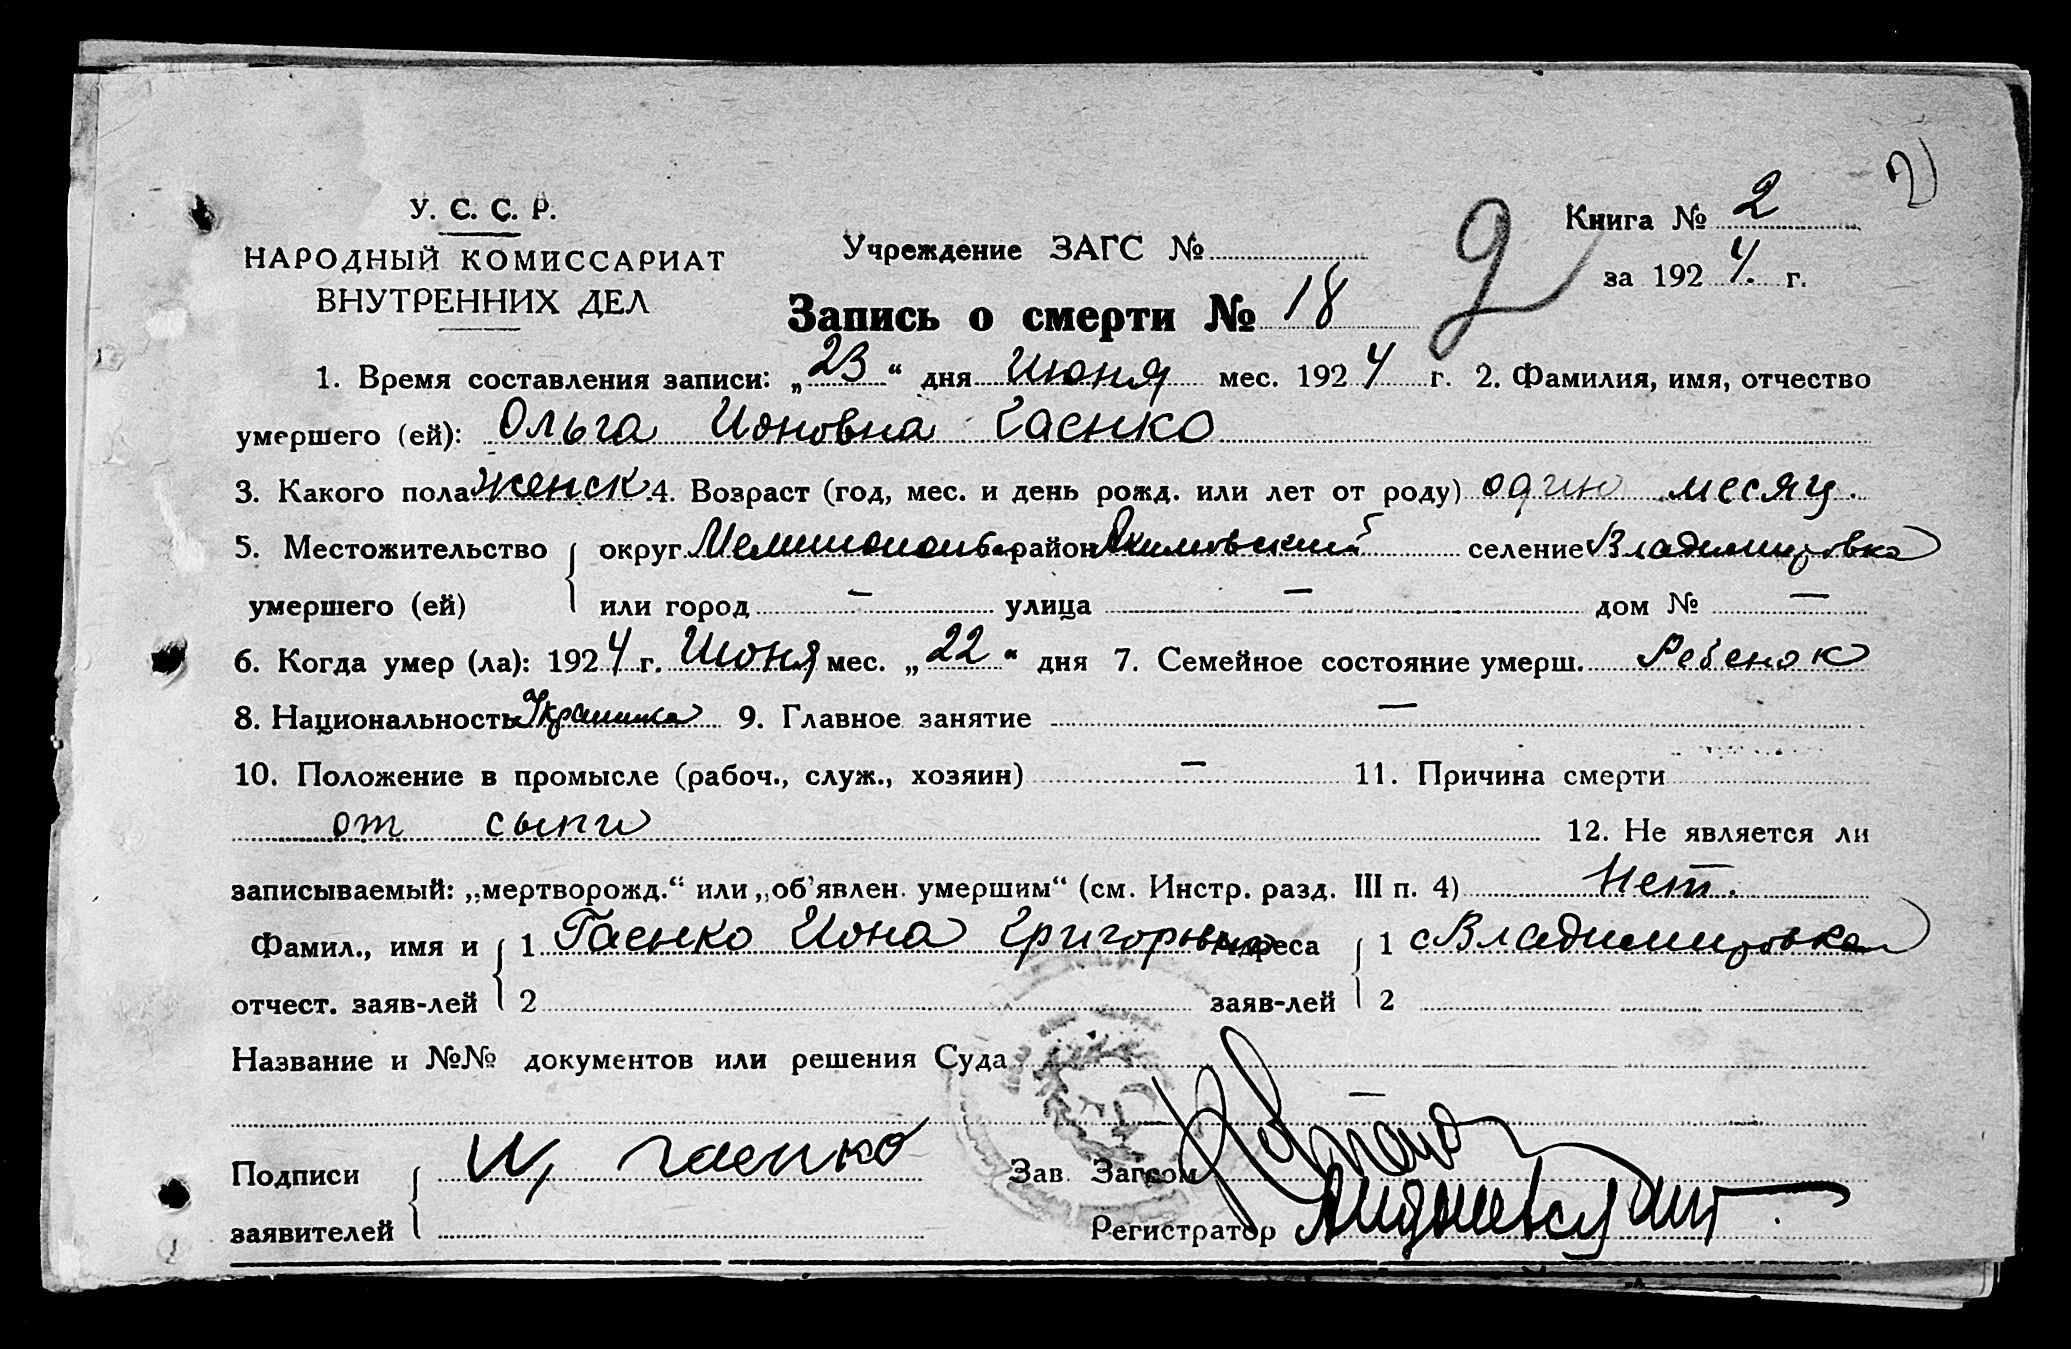 2)
У. С. С. Р.
НАРОДНЫЙ КОМИССАРИАТ
ВНУТРЕННИХ ДЕЛ
Учреждение ЗАГС №
2
Книга № 2
за 1924 г.
Запись о смерти № 18
1. Время составления записи: „23“ дня Июня мес. 1924 г. 2. Фамилия, имя, отчество
умершего (ей): Ольга Ионовна Гаенко
3. Какого пола женск. 4. Возраст (год, мес. и день рожд. или лет от роду) один месяц.
5. Местожительство округ район Акимовский селение Владимировка
умершего (ей) или город — улица — дом № —
6. Когда умер (ла): 1924 г. Июня мес. „22“ дня 7. Семейное состояние умерш. Ребенок
8. Национальность Украинка 9. Главное занятие —
10. Положение в промысле (рабоч., служ., хозяин) — 11. Причина смерти
от сыпи 12. Не является ли
записываемый: „мертворожд.“ или „об’явлен. умершим“ (см. Инстр. разд. III п. 4) Нет.
Фамил., имя и 1 Гаенко Иона Григорьевич Адреса 1 с Владимировка
отчест. заяв-лей 2 заяв-лей 2
Название и №№ документов или решения Суда
—
Подписи И, гаенко Зав. Загсом
заявителей Регистратор